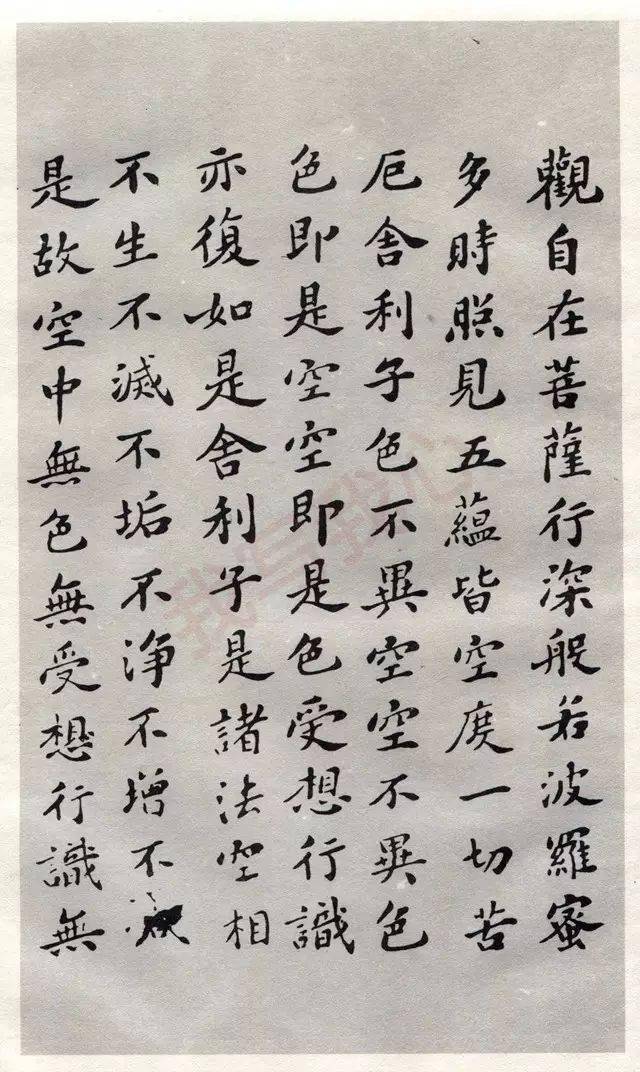 觀自在菩薩行深般若波羅蜜
多時照見五蘊皆空度一切苦
厄舍利子色不異空空不異色
色即是空空即是色受想行識
亦復如是舍利子是諸法空相
不生不滅不垢不浄不增不減
是故空中無色無受想行識無
我写我心